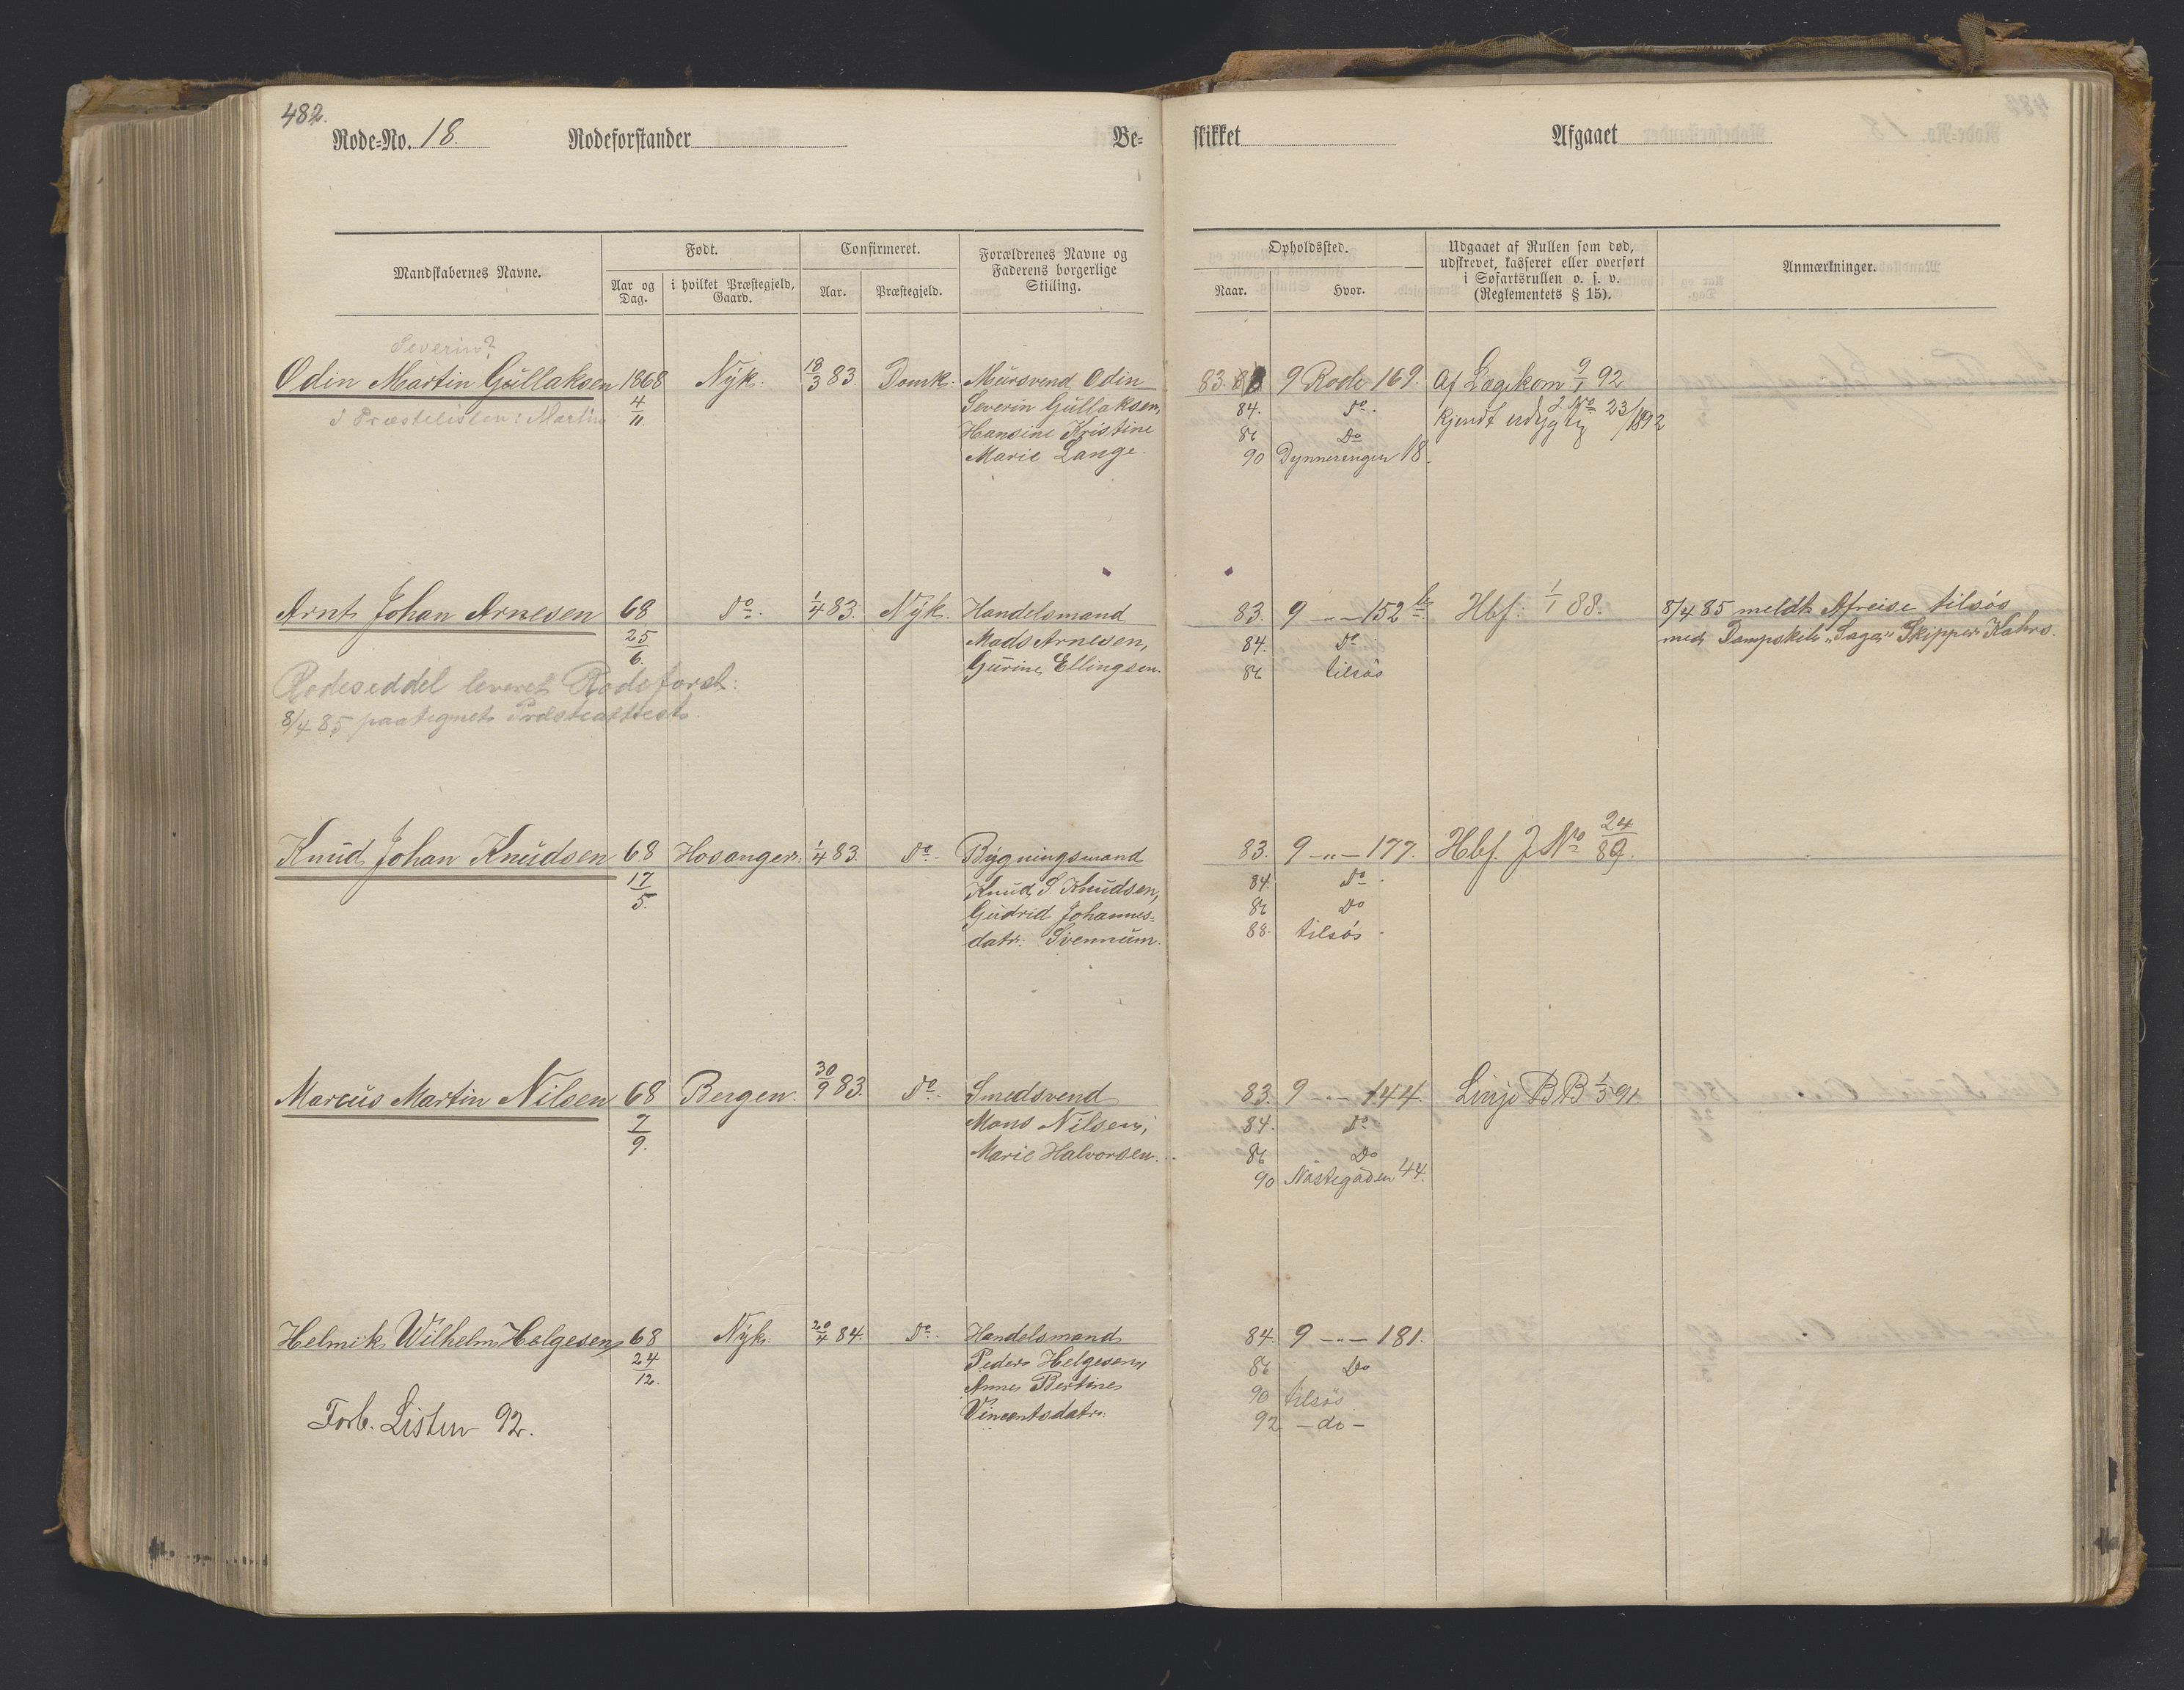 482.
Rode=No. 18. Rodeforstander Be=
skikket Afgaaet
Mandskabernes Navne.
Født.
Aar og Dag.
i hvilket Præstegjeld, Gaard.
Confirmeret.
Aar.
Præstegjeld.
Forældrenes Navne og
Faderens borgerlige
Stilling.
Opholdssted.
Naar.
Hvor.
Udgaaet af Rullen som død,
udskrevet, kasseret eller overført
i Søfartsrullen o. s. v.
(Reglementets § 15).
Anmærkninger.
Severin?
Odin Martin Gullaksen 1868 Nyk. 18/3 83. Domk. Mursvend Odin
i Præstelisten: Martin 4/11. Severin Gullaksen,
Hansine Kristine
Marie Lange.
83. 9 Rode 169. Af Lægekom 9/1 92
84. Do. kjendt udygtig J. No. 23/1892
86 Do
90 Dynneringen 18.
Arnt Johan Arnesen 68 Do. 1/4 83. Nyk. Handelsmand
25/6. Mads Arnesen,
Gurine Ellingsen.
Rodeseddel leveret Rodeforst:
8/4 85 paategnet Præsteattest.
83. 9 -"- 152 b Hbf: 1/1 88. 8/4 85 meldt Afreise tilsøs
84. Do. med Dampskib "Saga" Skipper Kahrs.
86 tilsøs
Knud Johan Knudsen 68 Hosanger. 1/4 83. Do. Bygningsmand
17/5. Knud S. Knudsen,
Gudrid Johannes=
datr. Svennum.
83. 9 -"- 177. Hbf. J No 24/89.
84. Do.
86 Do
88. tilsøs.
Marcus Martin Nilsen 68 Bergen. 30/9 83. Do. Smedsvend
7/9. Mons Nilsen,
Marie Halvorsen.
83. 9 -"- 144. Linje BB 1/3 91.
84. Do
86 Do
90 Nøstegaden 44.
Helmik Wilhelm Helgesen 68 Nyk. 20/4 84. Do. Handelsmand
24/12. Peder Helgesen,
Anne Bertine
Vincentsdatr.
Forb. Listen 92.
84. 9 -"- 181.
86 Do
90 tilsøs
92 -do-